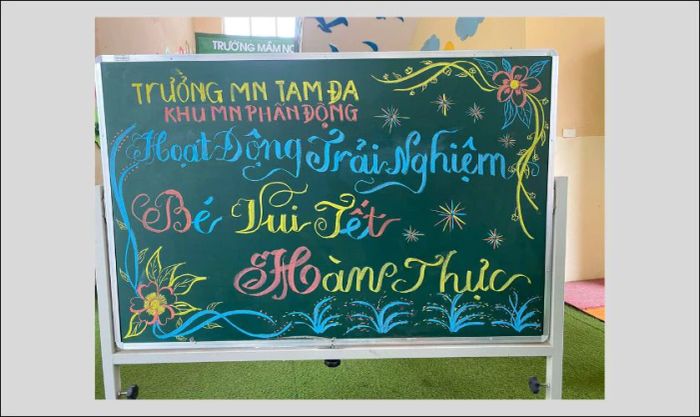 TRƯỜNG MẦM NO
TRƯỜNG MN TAM ĐA
KHU MN PHẤN ĐỘNG
Hoạt Động Trải Nghiệm
Bé Vui Tết
Hàn Thực